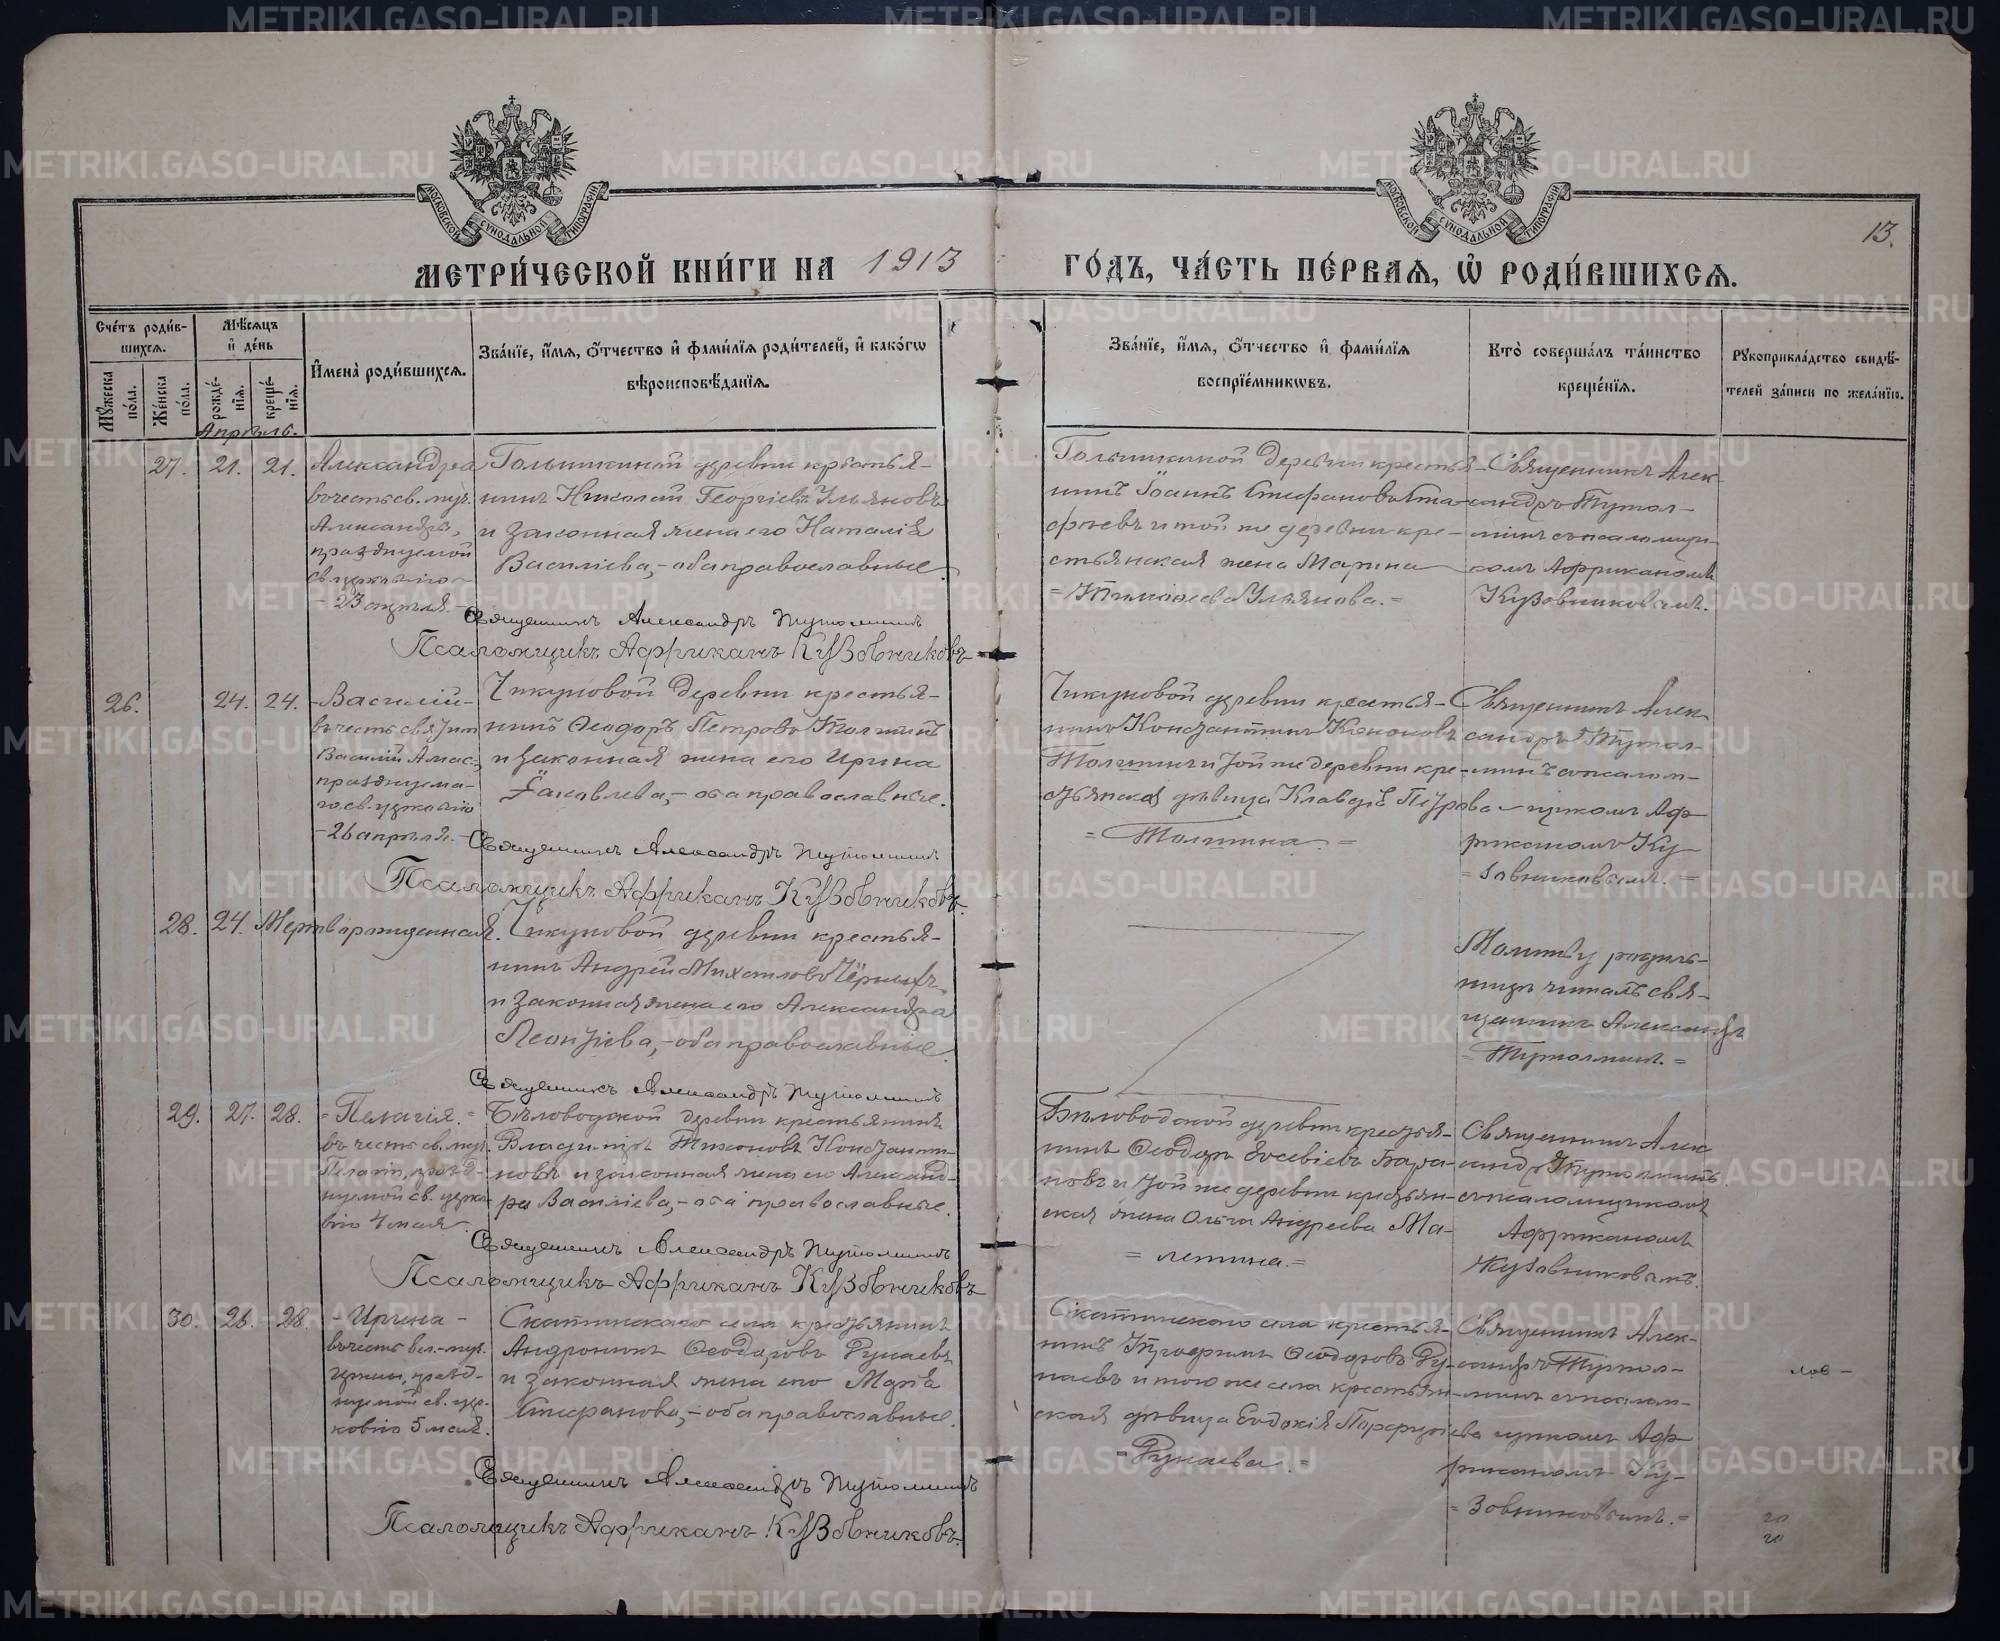 МОСКОВСКОЙ СѴНОДАЛЬНОЙ ТИПОГРАФІИ
МОСКОВСКОЙ СѴНОДАЛЬНОЙ ТИПОГРАФІИ
13.
МЕТРИ́ЧЕСКОЙ КНИ́ГИ НА 1913 ГО́ДЪ, ЧА́СТЬ ПЕ́РВАѦ, Ѡ҆ РОДИ́ВШИХСѦ.
Сче́тъ роди́вшихсѧ.
Мꙋ́жеска по́ла.
Же́нска по́ла.
Мѣ́сѧцъ и҆ де́нь
рожде́нїѧ.
креще́нїѧ.
И҆мена̀ роди́вшихсѧ.
Зва́нїе, и҆́мѧ, ѻ҆́тчество и҆ фами́лїѧ роди́телей, и҆ како́гѡ
вѣроисповѣ́данїѧ.
Зва́нїе, и҆́мѧ, ѻ҆́тчество и҆ фами́лїѧ
воспрїе́мникѡвъ.
Кто̀ соверша́лъ та́инство
креще́нїѧ.
Рꙋкоприкла́дство свидѣ́-
телей за́писи по жела́нїю.
Апрѣль.
27. 21. 21.
Александра
въ честь св. муч.
Александры,
празднуемой
св. церковію
- 23 апрѣля. -
деревни крестья-
нинъ Николай Георгіевъ Ульяновъ
и законная жена его Наталія
Василіева, - оба православные.
Священникъ Александръ Тутолминъ
Псаломщикъ Африканъ Кузовниковъ
деревни крестья-
нинъ Іоаннъ Стефановъ Ста-
и той же деревни кре-
стьянская жена Марина
Ульянова. =
Священникъ Алек-
сандръ Тутол-
минъ съ псаломщи-
комъ Африканомъ
Кузовниковымъ.
26. 24. 24.
- Василій -
въ честь свят.
Василія Амас.,
празднуема-
го св. церковію
- 26 апрѣля. -
Чикуновой деревни крестья-
нинъ Ѳеодоръ Петровъ Толшинъ
и законная жена его Ирина
Іаковлева, - оба православные.
Священникъ Александръ Тутолминъ
Псаломщикъ Африканъ Кузовниковъ.
Чикуновой деревни крестья-
нинъ Константинъ Кононовъ
Толшинъ и той же деревни кре-
стьянская дѣвица Клавдія Петрова
= Толшина. =
Священникъ Алек-
сандръ Тутол-
минъ съ псалом-
щикомъ Аф-
риканомъ Ку-
= зовниковымъ. =
28. 24. Мертворожденная.
Чикуновой деревни крестья-
нинъ Андрей Михаиловъ Черныхъ
и законная жена его Александра
Леонтіева, - оба православные.
Священникъ Александръ Тутолминъ
Молитву родиль-
ницѣ читалъ свя-
щенникъ Александръ
= Тутолминъ. =
29. 27. 28.
= Пелагія. =
въ честь св. муч.
Пелагіи, празд-
нуемой св. церко-
вію 4 мая.
Бѣловодской деревни крестьянинъ
Владиміръ Тихоновъ Константи-
новъ и законная жена его Александ-
ра Василіева, - оба православные.
Священникъ Александръ Тутолминъ
Псаломщикъ Африканъ Кузовниковъ
Бѣловодской деревни крестья-
нинъ Ѳеодоръ Евсевіевъ Бара-
новъ и той же деревни крестьян-
ская жена Ольга Андреева Ма-
= летина. =
Священникъ Алек-
сандръ Тутолминъ
съ псаломщикомъ
Африканомъ
Кузовниковымъ.
30. 26. 28.
- Ирина -
въ честь вел.-муч.
Ирины, празд-
нуемой св. цер-
ковію 5 мая.
Скатинскаго села крестьянинъ
Андроникъ Ѳеодоровъ Рукаевъ
и законная жена его Марія
Стефанова, - оба православные.
Священникъ Александръ Тутолминъ
Псаломщикъ Африканъ Кузовниковъ.
Скатинскаго села крестья-
нинъ Трофимъ Ѳеодоровъ Ру-
каевъ и того же села крестьян-
ская дѣвица Евдокія
= Рукаева. =
Священникъ Алек-
сандръ Тутол-
минъ съ псалом-
щикомъ Аф-
риканомъ Ку-
= зовниковымъ. =
METRIKI.GASO-URAL.RU